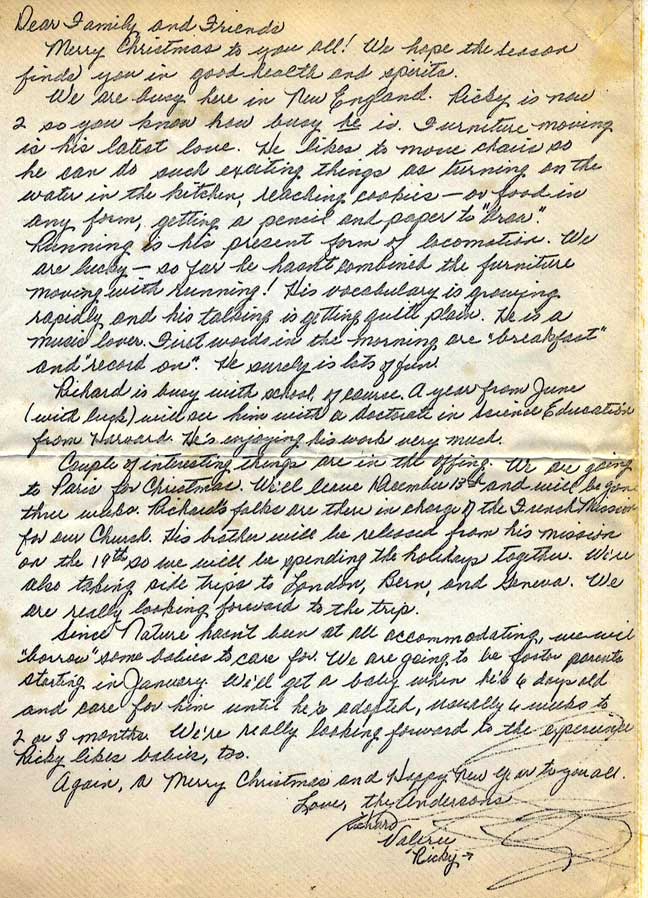 Dear Family and Friends
Merry Christmas to you all! We hope the season
finds you in good health and spirits.
We are busy here in New England. Ricky is now
2 so you know how busy he is. Furniture moving
is his latest love. He likes to move chairs so
he can do such exciting things as turning on the
water in the kitchen, reaching cookies — or food in
any form, getting a pencil and paper to "draw".
Running is his present form of locomotion. We
are lucky — so far he hasn't combined the furniture
moving with running! His vocabulary is growing
rapidly and his talking is getting quite plain. He is a
music lover. First words in the morning are "breakfast"
and "record on". He surely is lots of fun.
Richard is busy with school, of course. A year from June
(with luck) will see him with a doctorate in Science Education
from Harvard. He's enjoying his work very much.
Couple of interesting things are in the offing. We are going
to Paris for Christmas. We'll leave December 13th and will be gone
three weeks. Richard's folks are there in charge of the French Mission
for our Church. His brother will be released from his mission
on the 19th so we will be spending the holidays together. We're
also taking side trips to London, Bern, and Geneva. We
are really looking forward to the trip.
Since Nature hasn't been at all accommodating, we will
"borrow" some babies to care for. We are going to be foster parents
starting in January. We'll get a baby when he's 6 days old
and care for him until he's adopted, usually 6 weeks to
2 or 3 months. We're really looking forward to the experience
Ricky likes babies, too.
Again, a Merry Christmas and Happy New Year to you all.
Love, the Andersons
Richard
Valerie
Ricky →